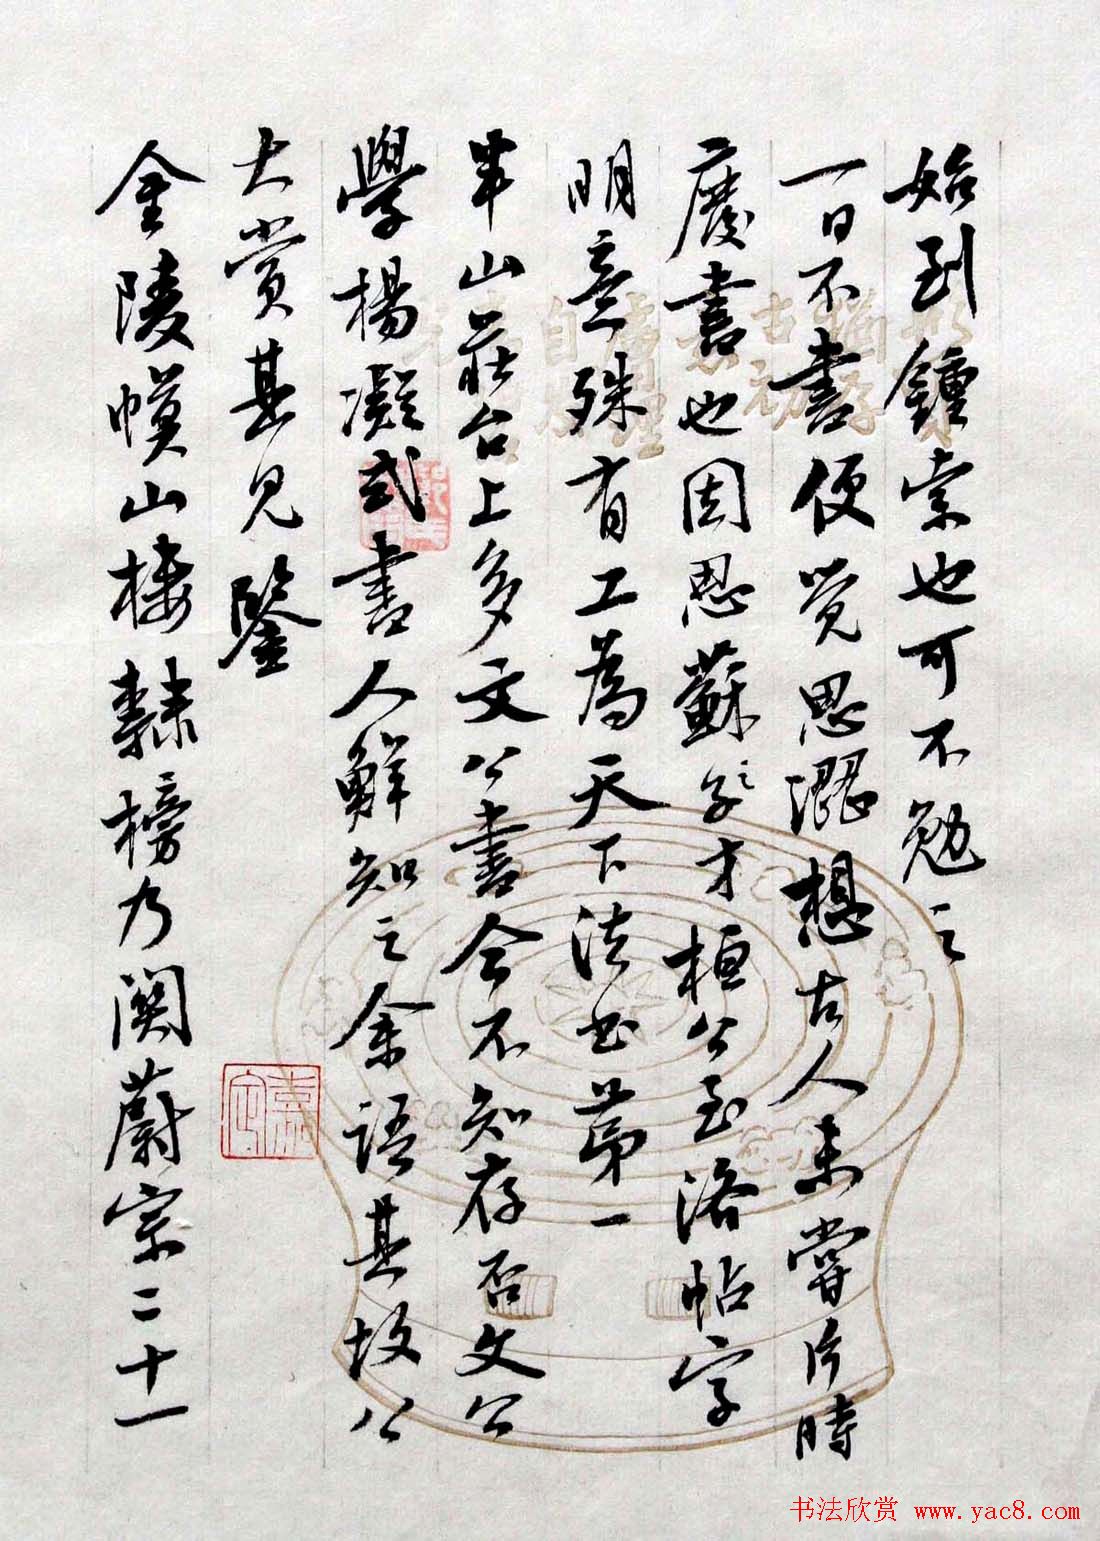 始到鍾索也可不勉之
一日不書便覺思澀想古人未嘗片時
廢書也因思蘇之才桓公至洛帖字
明意殊有工為天下法書第一
半山莊台上多文公書今不知存否文公
學楊凝式書人鮮知之余語其故公
大賞其見鑒
金陵幙山樓隸榜乃関蔚宗二十一
书法欣赏 www.yac8.com